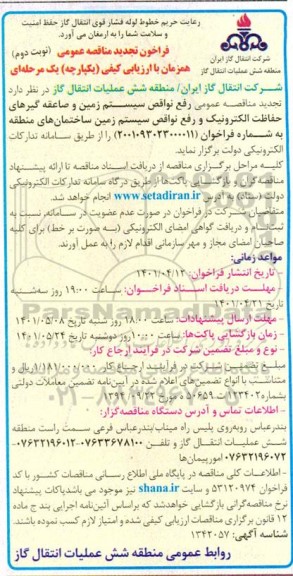 رعایت حریم خطوط لوله فشار قوی انتقال گاز حفظ امنیت
و سلامت شما را به ارمغان می آورد.
شرکت انتقال گاز ایران
منطقه شش عملیات انتقال گاز
فراخوان تجدید مناقصه عمومی (نوبت دوم)
همزمان با ارزیابی کیفی (یکپارچه) یک مرحله‌ای
شرکت انتقال گاز ایران/ منطقه شش عملیات انتقال گاز در نظر دارد
تجدید مناقصه عمومی رفع نواقص سیستم زمین و صاعقه گیرهای
حفاظت الکترونیک و رفع نواقص سیستم زمین ساختمان‌های منطقه
به شماره فراخوان (۲۰۰۱۰۹۳۰۲۳۰۰۰۰۱۱) را از طریق سامانه تدارکات
الکترونیکی دولت برگزار نماید.
کلیه مراحل برگزاری مناقصه از دریافت اسناد مناقصه تا ارائه پیشنهاد
مناقصه‌گران و بازگشایی پاکت‌ها از طریق درگاه سامانه تدارکات الکترونیکی
دولت (ستاد) به آدرس www.setadiran.ir انجام خواهد شد.
متقاضیان شرکت در فراخوان در صورت عدم عضویت در سامانه، نسبت به
ثبت‌نام و دریافت گواهی امضای الکترونیکی (به صورت بر خط) برای کلیه
صاحبان امضای مجاز و مهر سازمانی اقدام لازم را به عمل آورند.
مواعد زمانی:
- تاریخ انتشار فراخوان: ۱۴۰۱/۰۴/۱۴
- مهلت دریافت اسناد فراخوان: ساعت ۱۹:۰۰ روز سه‌شنبه
تاریخ ۱۴۰۱/۰۴/۲۱
- مهلت ارسال پیشنهادات: ساعت ۱۸:۰۰ روز شنبه تاریخ ۱۴۰۱/۰۵/۰۸
- زمان بازگشایی پاکت‌ها: ساعت ۱۰:۰۰ روز دوشنبه تاریخ ۱۴۰۱/۰۵/۲۴
- نوع و مبلغ تضمین شرکت در فرایند ارجاع کار:
مبلغ تضمین شرکت در فرآیند ارجاع کار ریال و
متناسب با انواع تضمین‌های اعلام شده در آیین‌نامه تضمین معاملات دولتی
- اطلاعات تماس و آدرس دستگاه مناقصه‌گزار:
بندرعباس روبه‌روی پلیس راه میناب بندرعباس فرعی سمت راست منطقه
شش عملیات انتقال گاز و تلفن ۰۷۶۳۳۶۷۸۱۰۰-۰۷۶۳۲۱۹۶۰۱۲
۰۷۶۳۲۱۹۶۰۷۲ امور پیمان‌ها
- اطلاعات کلی مناقصه در پایگاه ملی اطلاع رسانی مناقصات کشور با کد
فراخوان ۵۳۱۲۰۹۷۴ و سایت shana.ir نیز موجود می باشد پاکات پیشنهاد
نرخ مناقصه‌گرانی بازگشایی خواهد شد که براساس آئین‌نامه اجرایی بند ج ماده
۱۲ قانون برگزاری مناقصات ارزیابی کیفی شده و امتیاز لازم کسب نموده باشند.
شناسه آگهی: ۱۳۴۲۰۵۷
روابط عمومی منطقه شش عملیات انتقال گاز